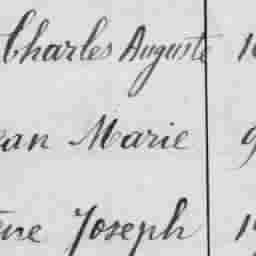 Charles Auguste
ean Marie 9
ne Joseph